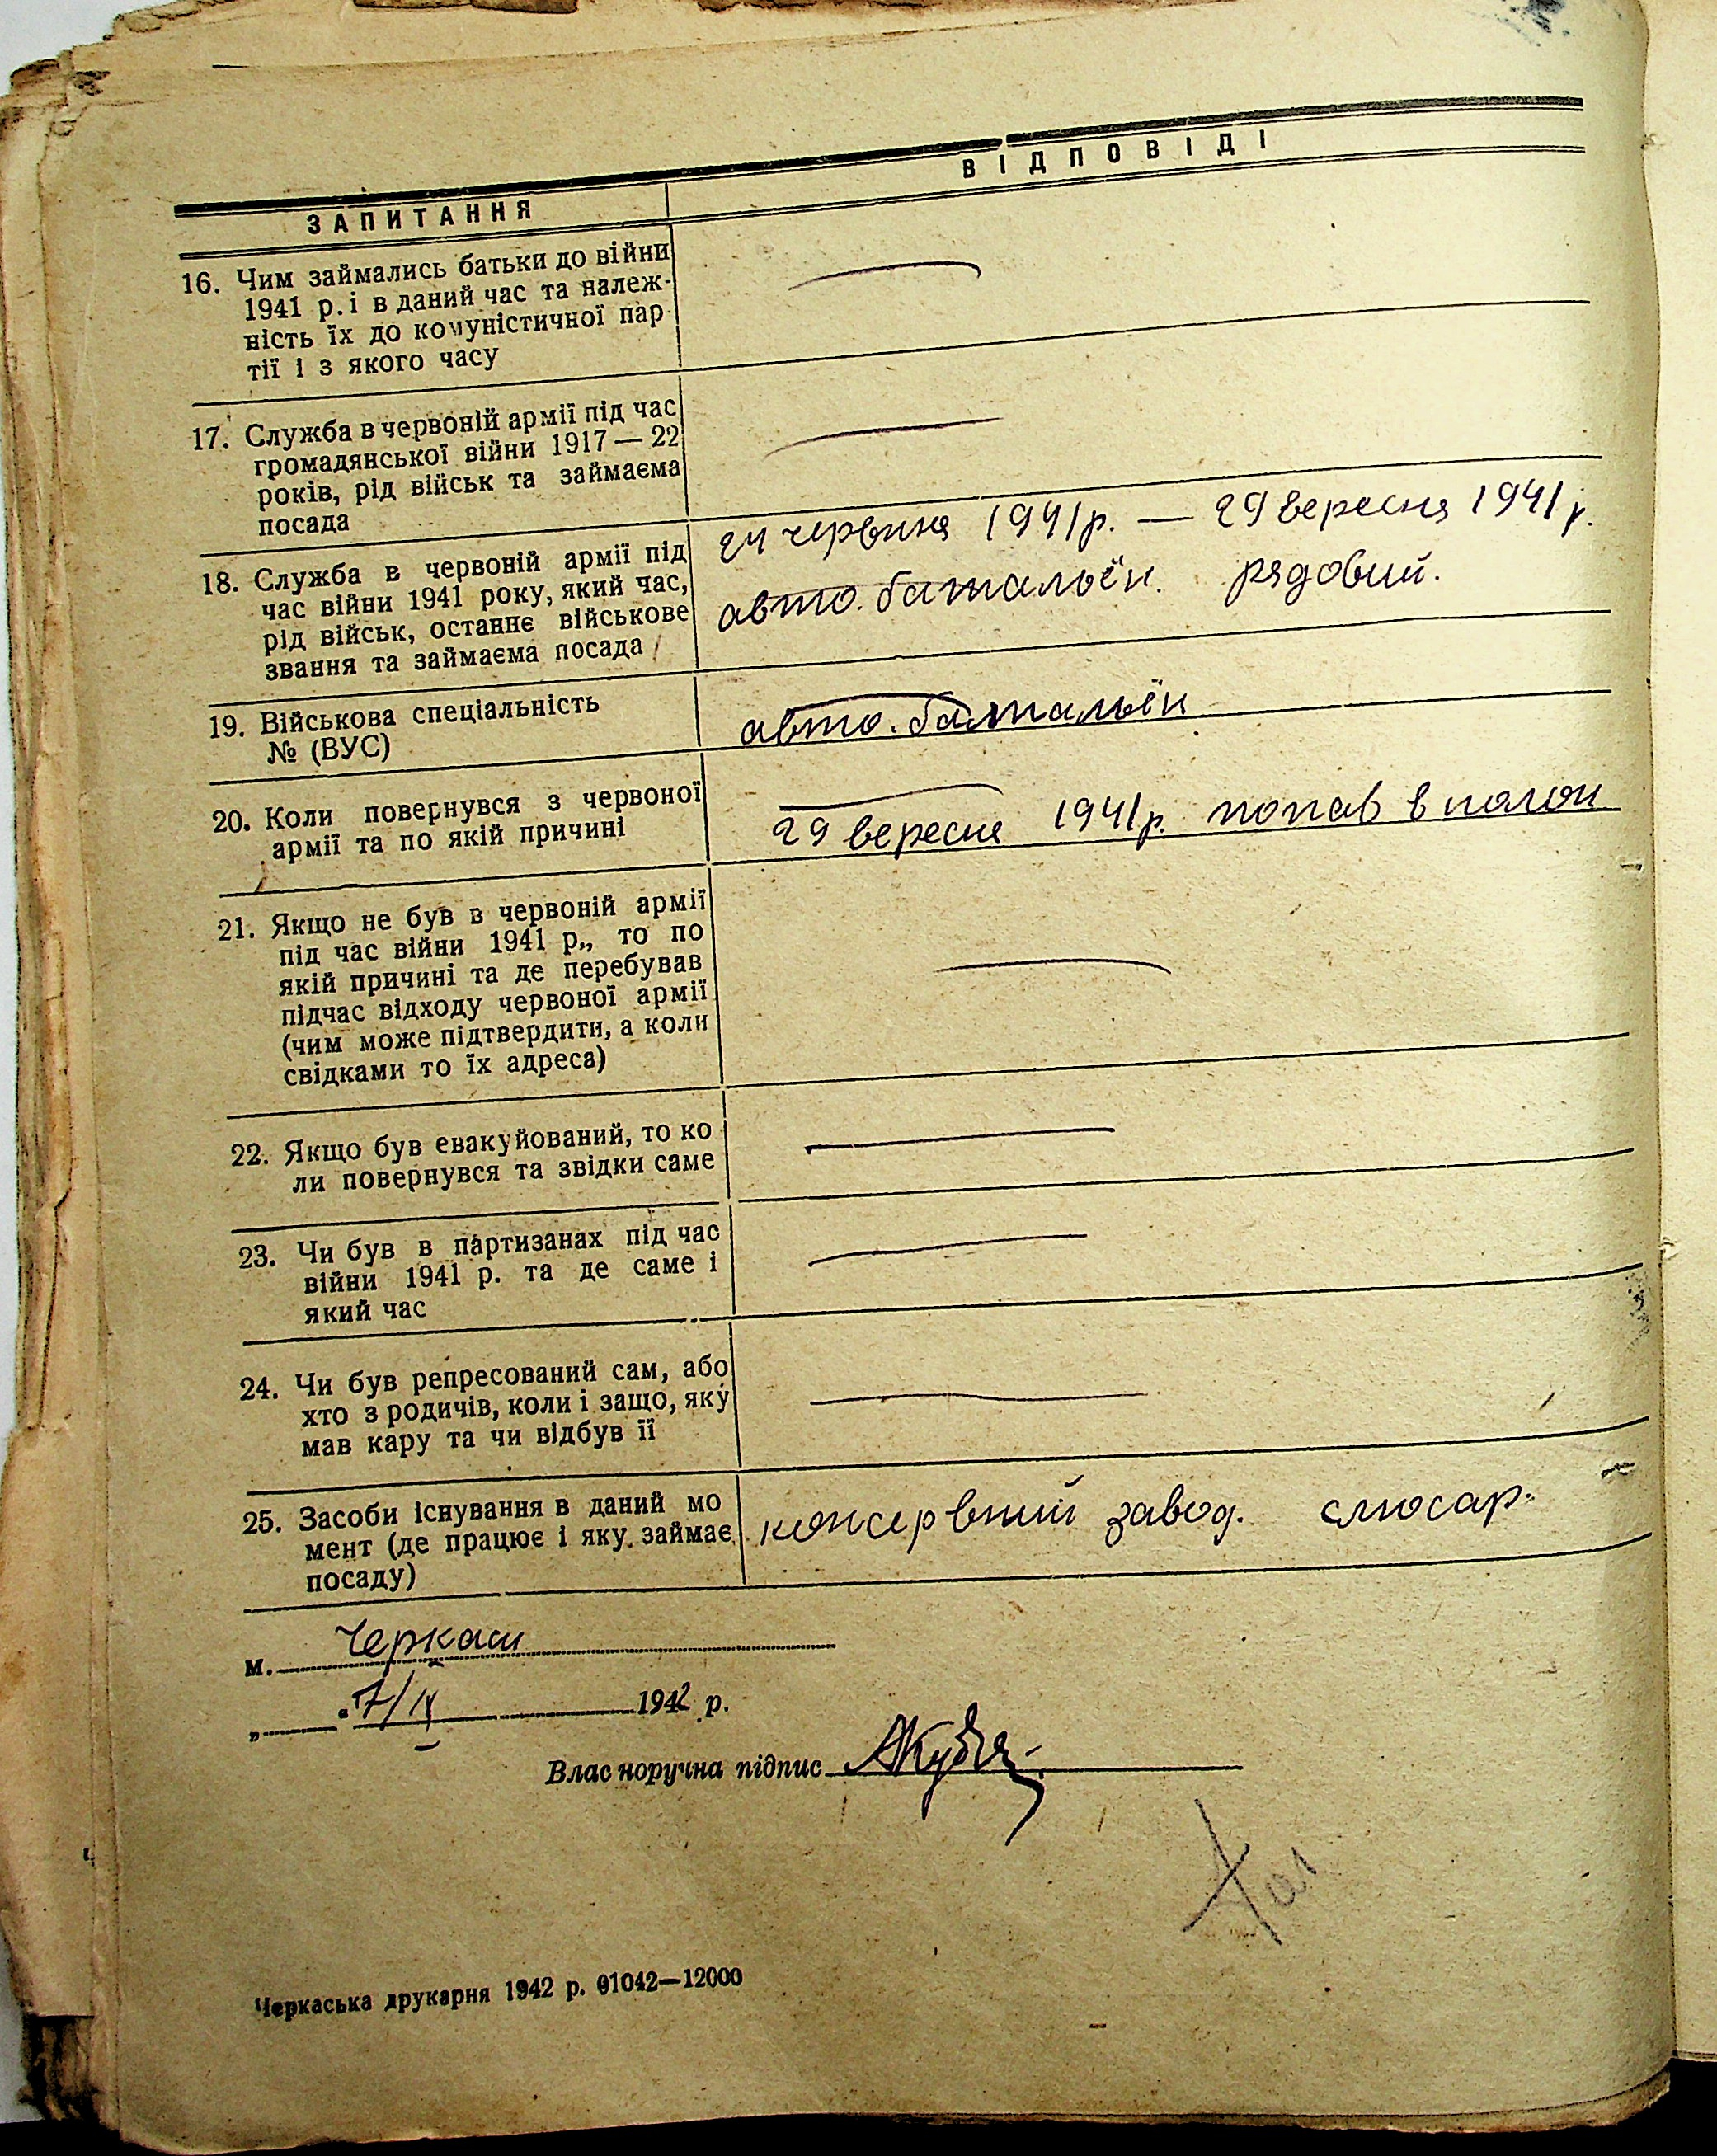 ЗАПИТАННЯ
ВІДПОВІДІ
16. Чим займались батьки до війни
1941 р. і в даний час та належ-
ність їх до комуністичної пар-
тії і з якого часу
17. Служба в червоній армії під час
громадянської війни 1917 — 22
років, рід військ та займаєма
посада
18. Служба в червоній армії під
час війни 1941 року, який час,
рід військ, останнє військове
звання та займаєма посада
24 червня 1941 р. — 29 вересня 1941 р.
авто. батальён. рядовий.
19. Військова спеціальність
№ (ВУС)
авто. батальён
20. Коли повернувся з червоної
армії та по якій причині
29 вересня 1941 р. попав в полон
21. Якщо не був в червоній армії
під час війни 1941 р., то по
якій причині та де перебував
підчас відходу червоної армії
(чим може підтвердити, а коли
свідками то їх адреса)
22. Якщо був евакуйований, то ко
ли повернувся та звідки саме
23. Чи був в партизанах під час
війни 1941 р. та де саме і
який час
24. Чи був репресований сам, або
хто з родичів, коли і защо, яку
мав кару та чи відбув її
25. Засоби існування в даний мо
мент (де працює і яку займає
посаду)
консервний завод. слюсар.
м. Черкаси
„ “ 7/IX 1942 р.
Власноручна підпис
Черкаська друкарня 1942 р. 01042—12000